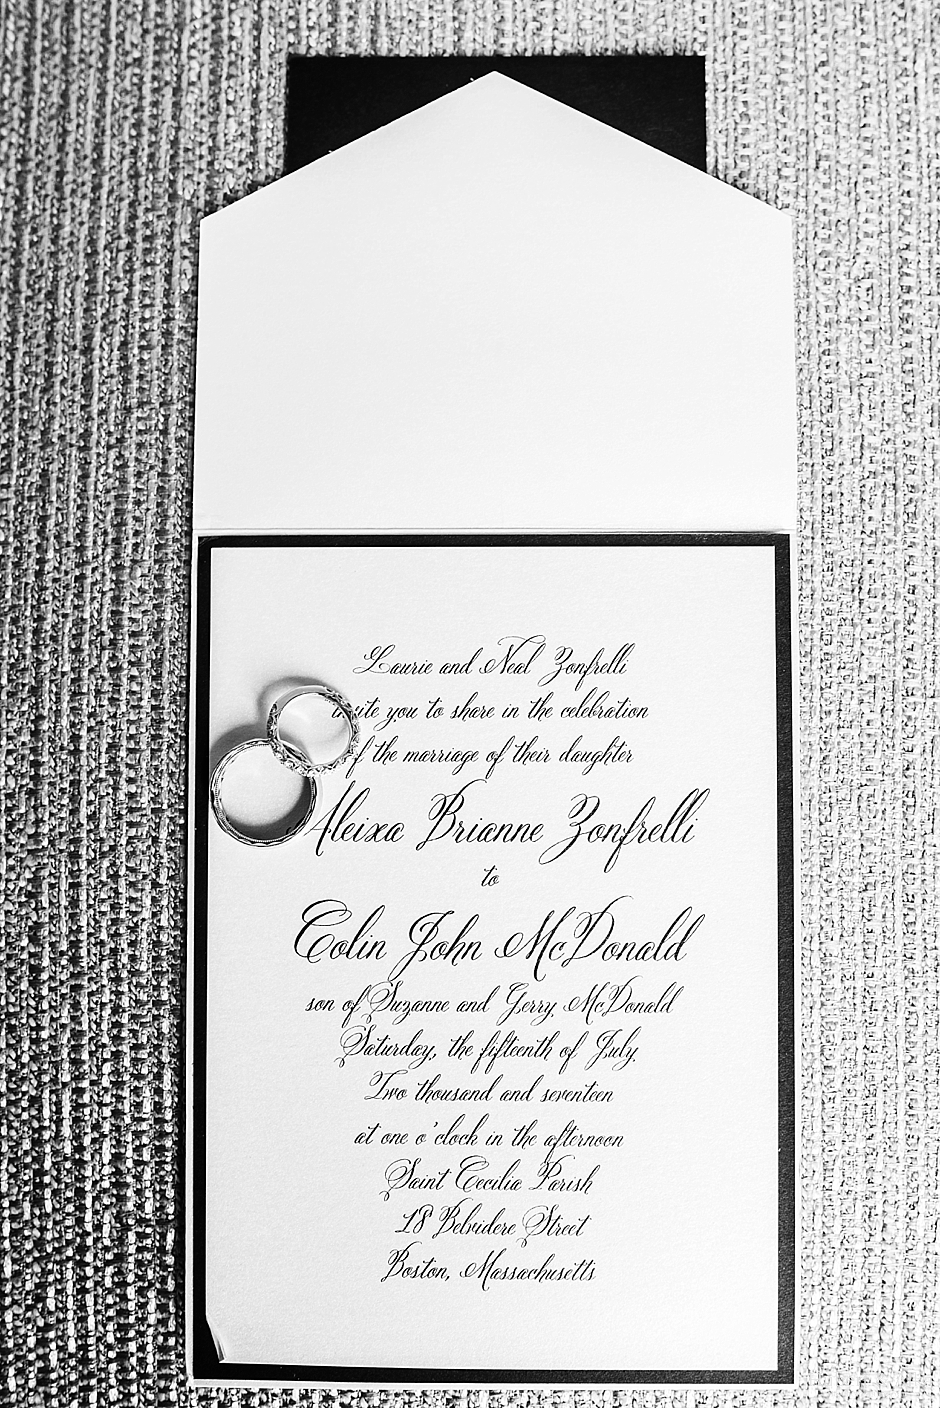 Laurie and Neal Zonfrelli
invite you to share in the celebration
of the marriage of their daughter
Aleixa Brianne Zonfrelli
to
Colin John McDonald
son of Suzanne and Gerry McDonald
Saturday, the fifteenth of July,
Two thousand and seventeen
at one o'clock in the afternoon
Saint Cecilia Parish
18 Belvidere Street
Boston, Massachusetts